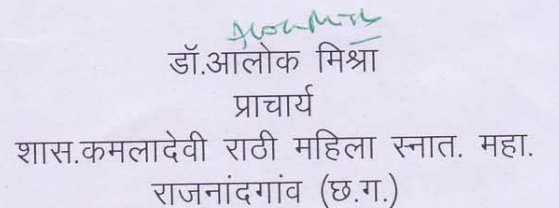 डॉ.आलोक मिश्रा
प्राचार्य
शास.कमलादेवी राठी महिला स्नात. महा.
राजनांदगांव (छ.ग.)